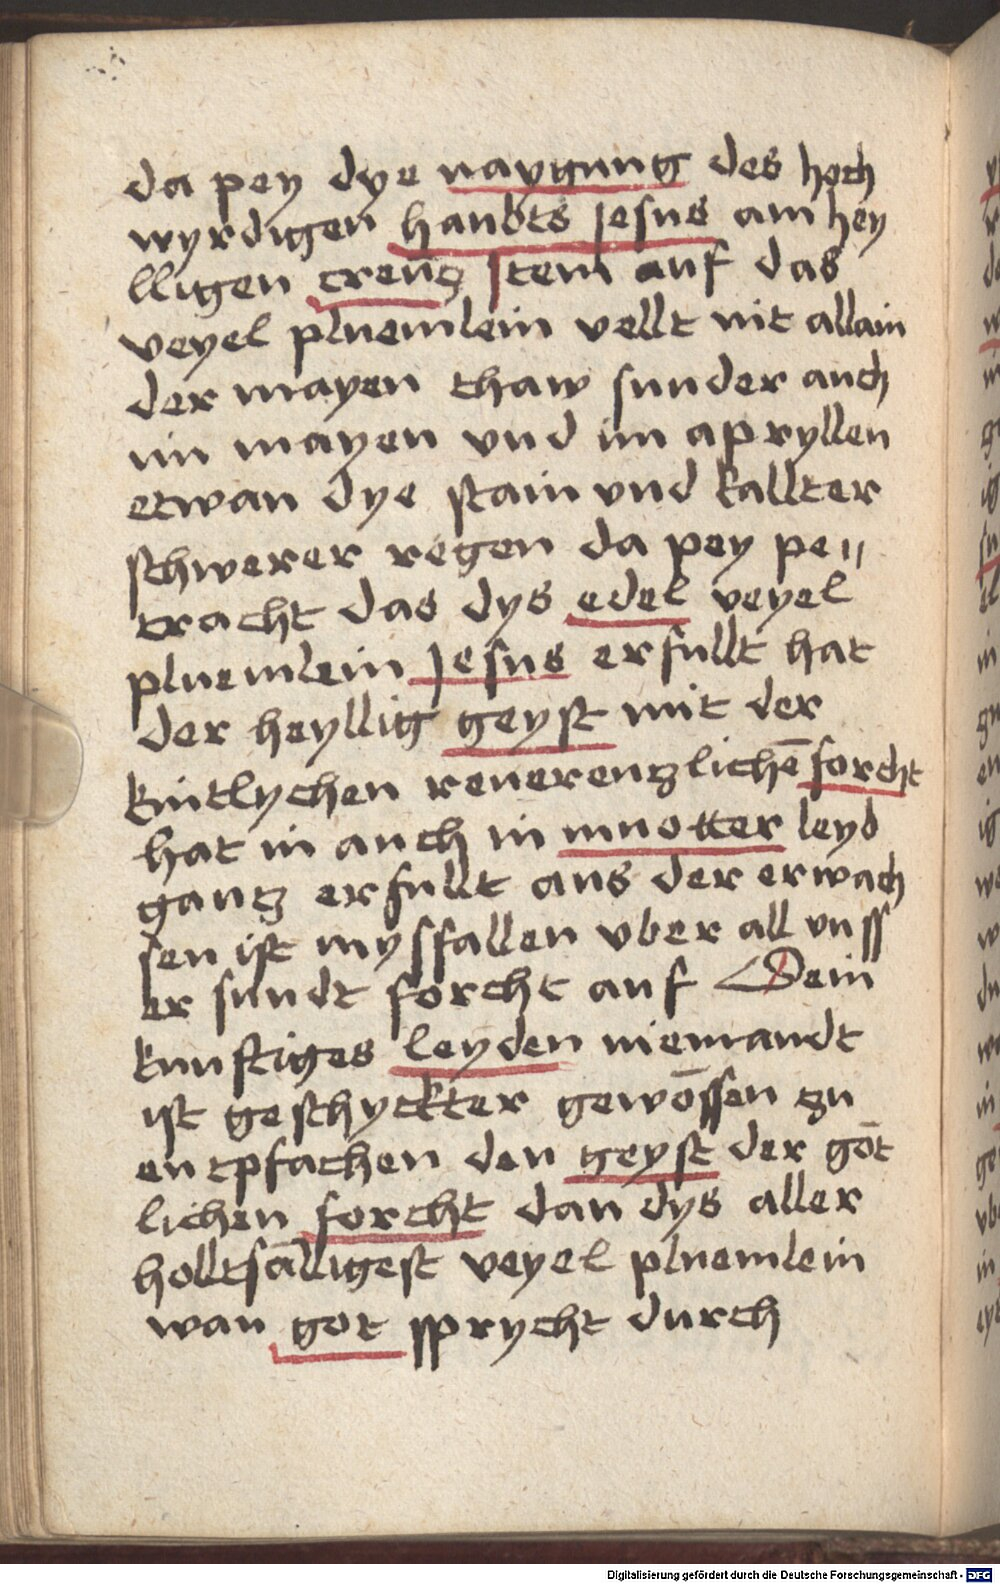 da pey dye naygung des hoch
wyrdigen haubts jesus am hey
lligen creutz stem auf das
veyel pluemlein vellt nit allain
der mayen thaw sunder auch
im mayen vnd im apryllen
etwan dye stain vnd kallter
schwerer regen da pey pe〃
tracht das dys edel veyel
pluemlein Jesus erfullt hat
der heyllig geyst mit der
kintlychen reuerentzlichē forcht
hat in auch in muotter leyb
gantz erfullt aus der erwach
sen ist mysfallen vber all vnss
er sundt forcht auf Sein
kunftiges leyden niemandt
ist geschyckter gewōssen zu
entpfachen den geyst der gōt
lichen forcht dan dys aller
holltsālligest veyel pluemlein
wan got sprycht durch
Digitalisierung gefördert durch die Deutsche Forschungsgemeinschaft - DFG